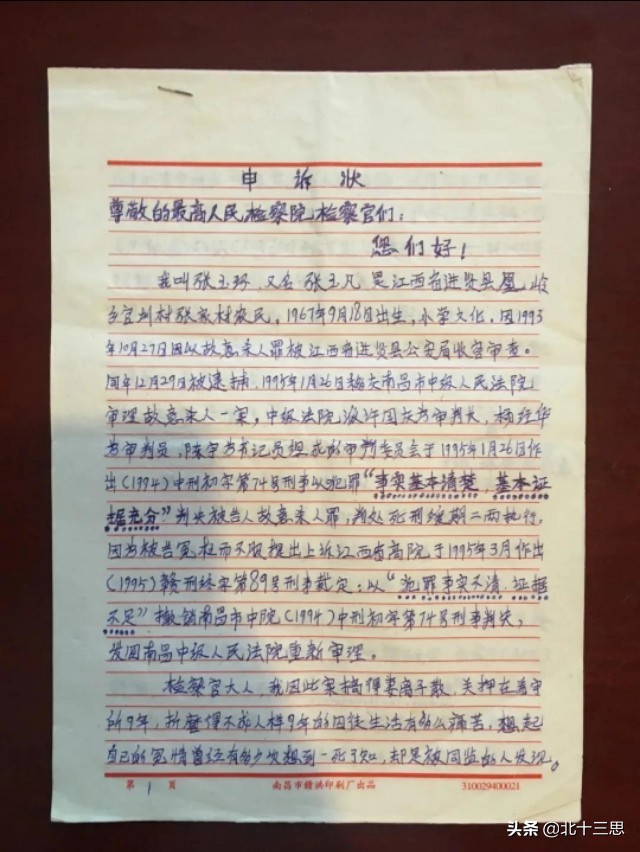 申诉状
尊敬的最高人民检察院检察官们：
您们好！
我叫张玉环，又名张玉凡，是江西省进贤县凰岭
乡官圳村张家村农民，1967年9月18日出生，小学文化，因1993
年10月27日因以故意杀人罪被江西省进贤县公安局收容审查。
同年12月29日被逮捕，1995年1月26日移交南昌市中级人民法院
审理故意杀人一案，中级法院派许国友为审判长，杨经华
为审判员，陈宇为书记员组成的审判委员会于1995年1月26日作
出（1994）中刑初字第74号刑事以犯罪“事实基本清楚，基本证
据充分”判决被告人故意杀人罪，判处死刑缓期二两执行，
因为被告冤枉而不服提出上诉江西省高院于1995年3月作出
（1995）赣刑终字第89号刑事裁定：以“犯罪事实不清，证据
不足”撤销南昌市中院（1994）中刑初字第74号刑事判决，
发回南昌中级人民法院重新审理。
检察官大人，我因此案搞得妻离子散，关押在看守
所9年，折磨得不成人样9年的囚徒生活有多么痛苦，想起
自己的冤情曾经有多少次想到一死了知，却是被同监的人发现。
第 1 页
南昌市赣洪印刷厂出品
310029400021
头条 @北十三思